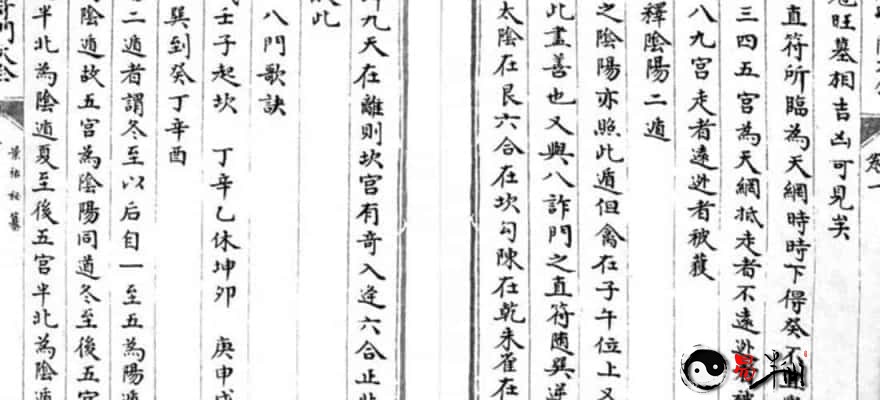 旺墓相吉凶可見矣
直符所臨為天網時時下得癸不
三四五宮為天網抵走者不遠逃
八九宮走者遠逃者被獲
釋陰陽二遁
之陰陽亦照此遁但禽在子午位上又
此盡善也又與八詐門之直符随巽逆
太陰在艮六合在坎勾陳在乾朱雀在
九天在離則坎宮有奇入逢六合止
此
八門歌訣
壬子起坎 丁辛乙休坤卯 庚申戌
巽到癸丁辛酉
二遁者謂冬至以后自一至五為陽遁
陰遁故五宮為陰陽同道冬至後五宮
半北為陰遁夏至後五宮半北為陰遁
景祐秘纂